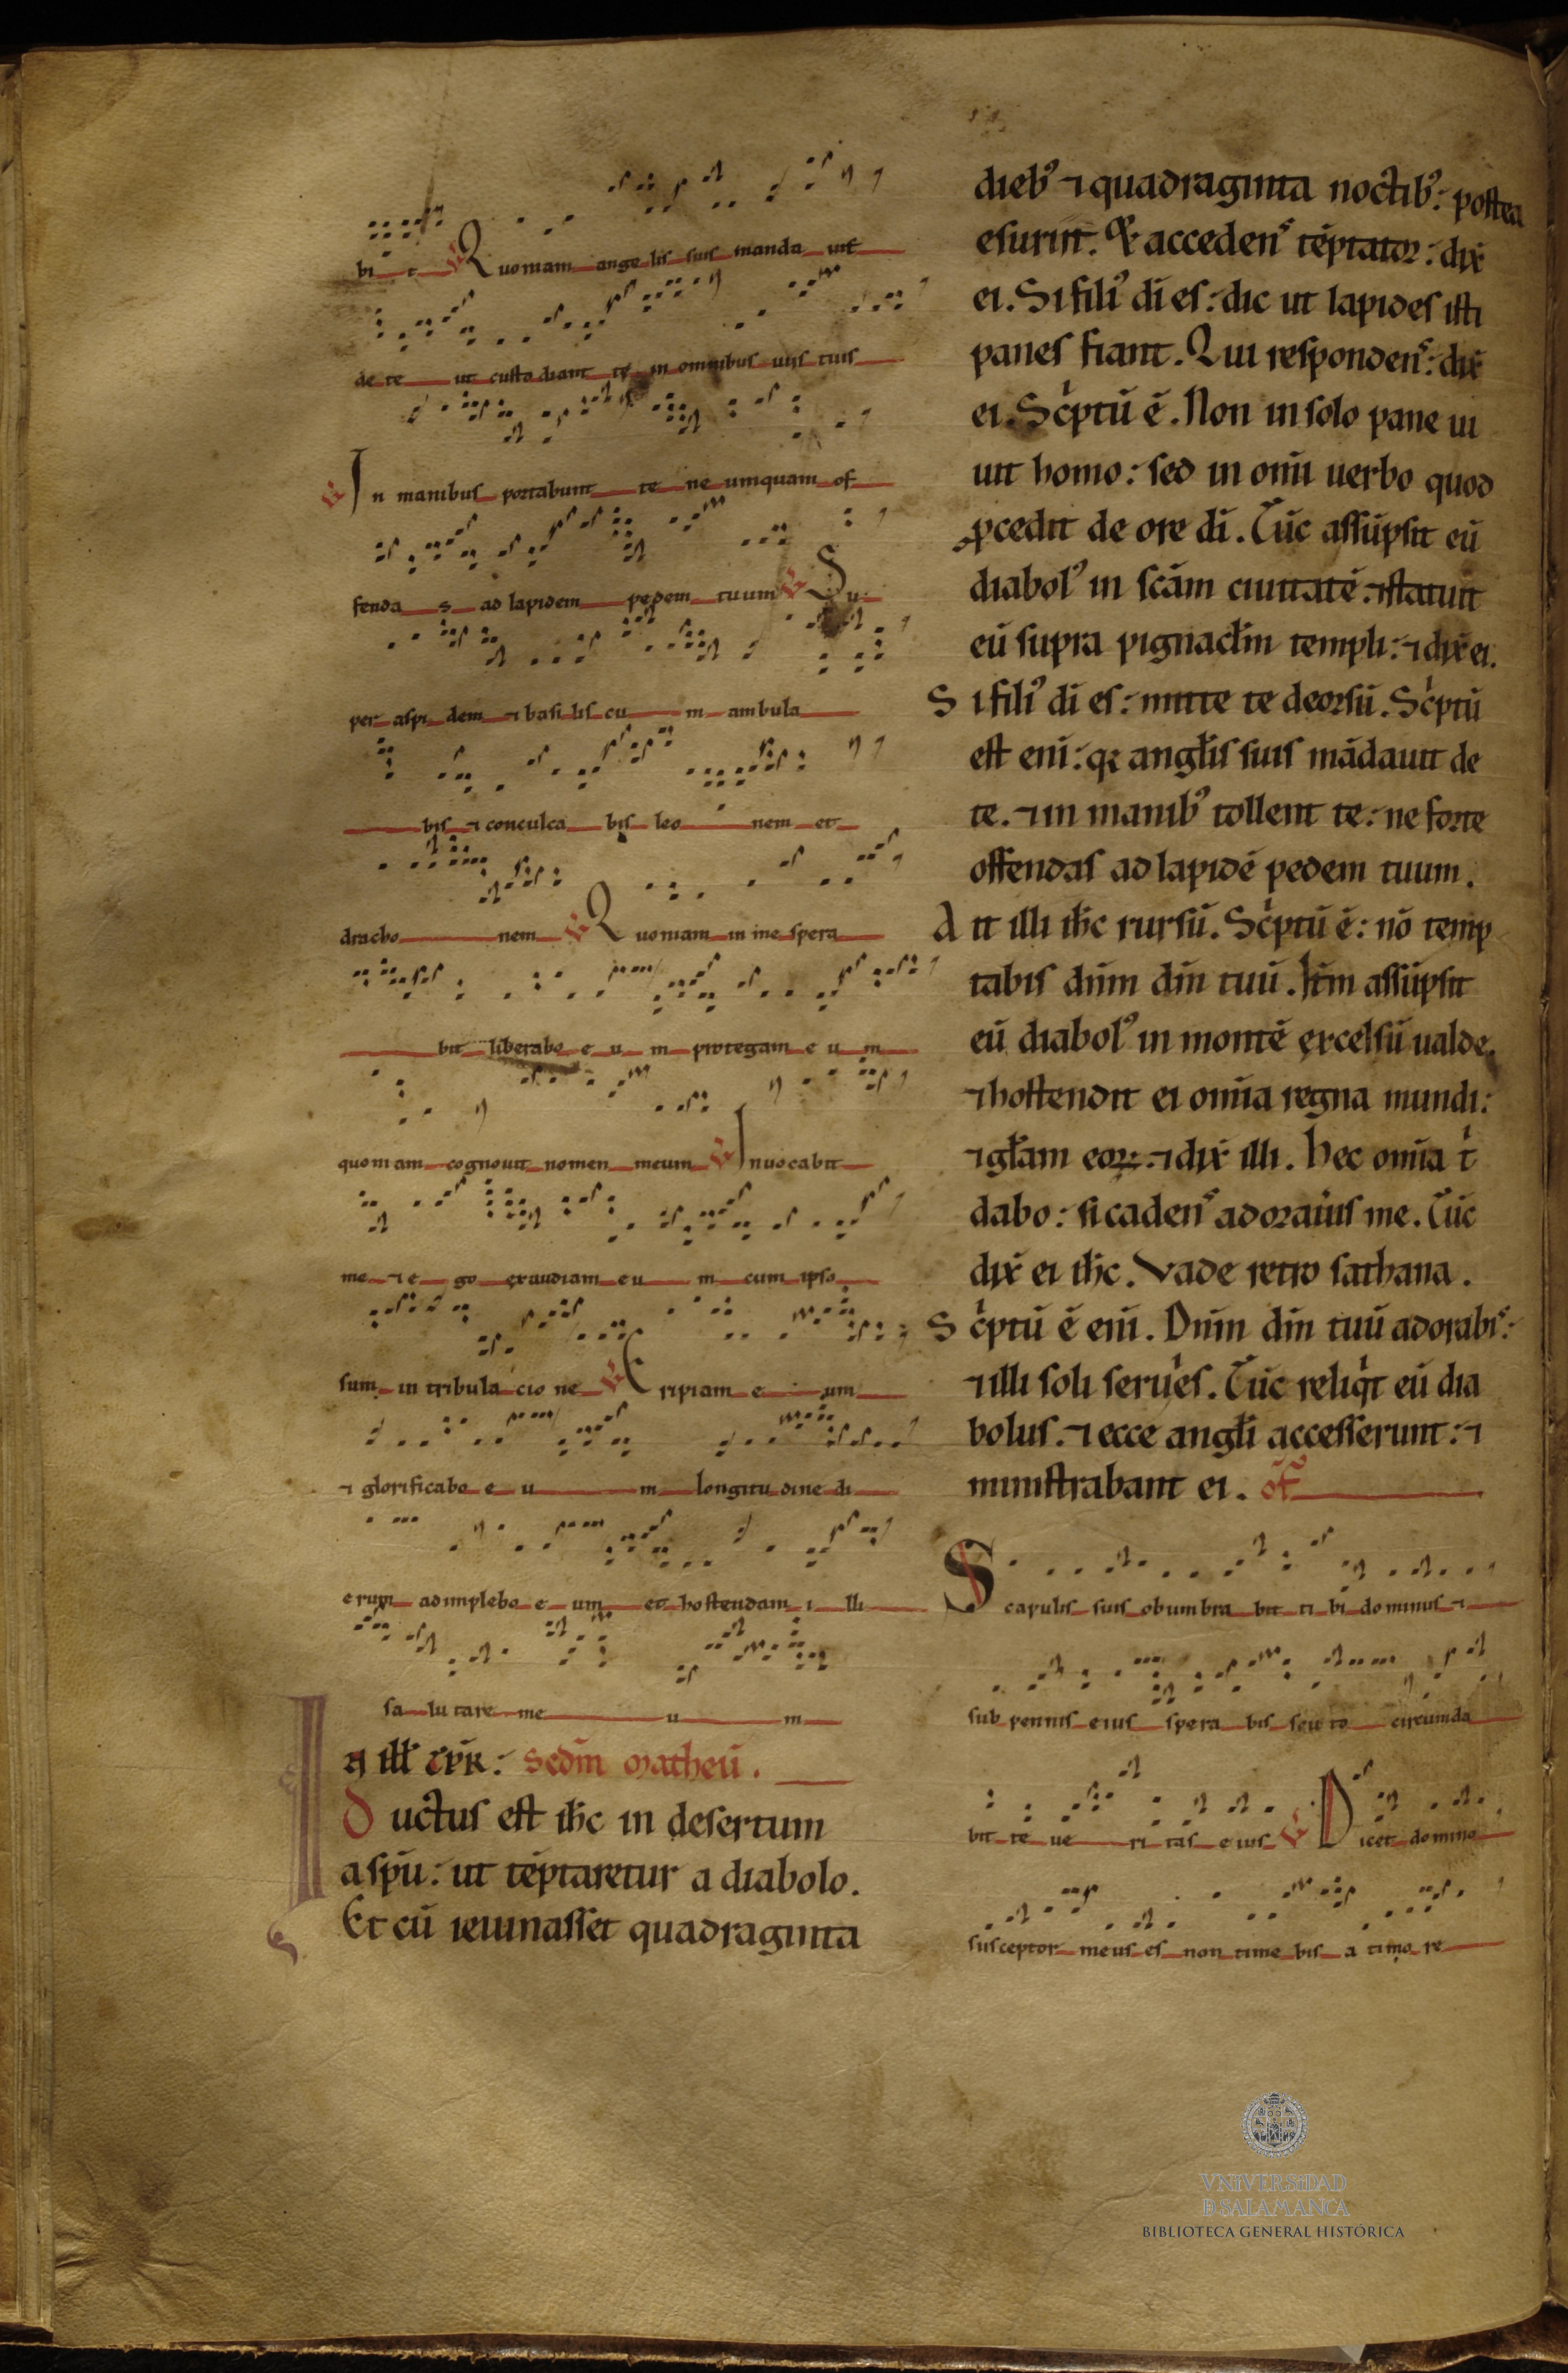 bi t V Quoniam angelis suis manda uit
de te ut custodiant te in omnibus uiis tuis
V In manibus portabunt te ne umquam of
fenda s ad lapidem pedem tuum V Su
per aspidem ⁊ basiliscu m ambula
bis ⁊ conculcabis leo nem et
dracho nem V Quoniam in me spera
bit liberabo e u m protegam e u m
quoniam cognouit nomen meum V Inuocabit
me ⁊ e go exaudiam eu m cum ipso
sum in tribulacione V Eripiam e um
⁊ glorificabo e u m longitudine di
erum adimplebo e um et hostendam i lli
salutare me u m
In ill̄ tp̄r. sedm̄ Matheū.
Ductus est ih̄c in desertum
a sp̄u. ut tēptaretur a diabolo.
Et cū ieiunasset quadraginta
dieb᷒ ⁊ quadraginta noctib᷒. postea
esuriit. Et acceden᷒ tēptator. dix̄
ei. Si fili᷒ di es. dic ut lapides isti
panes fiant. Qui responden᷒. dix̄
ei. Scͥptū ē. Non in solo pane ui
uit homo. sed in om̄i uerbo quod
ꝓcedit de ore di. Tūc assūpsit eū
diabol᷒ in scām ciuitatē. ⁊ statuit
eū supra pignaclm̄ templi. ⁊ dix̄ ei.
Si fili᷒ di es. mitte te deorsū. Scͥptū
est eni. qꝛ angl̄is suis mādauit de
te. ⁊ in manib᷒ tollent te. ne forte
offendas ad lapidē pedem tuum.
Ait illi ih̄c rursū. Scͥptū ē. nō temp
tabis dnm̄ dm̄ tuū. Itm̄ assūpsit
eū diabol᷒ in montē excelsū ualde.
⁊ hostendit ei om̄ia regna mundi.
⁊ gl̄am eoꝝ. ⁊ dix̄ illi. Hec om̄ia tͥ
dabo. si caden᷒ adoraūis me. Tūc
dix̄ ei ih̄c. Vade retro sathana.
Scͥptū ē eni. Dnm̄ dm̄ tuū adorabi᷒.
⁊ illi soli seruͥes. Tūc reliqͥt eū dia
bolus. ⁊ ecce angl̄i accesserunt. ⁊
ministrabant ei. of̄
Scapulis suis obumbra bit ti bi dominus ⁊
sub pennis eius spera bis scuto circumda
bit te ue ri tas eius V Dicet domino
susceptor meus es non time bis a timo re
VNiVERSiDAD
Ð SALAMANCA
BIBLIOTECA GENERAL HISTÓRICA